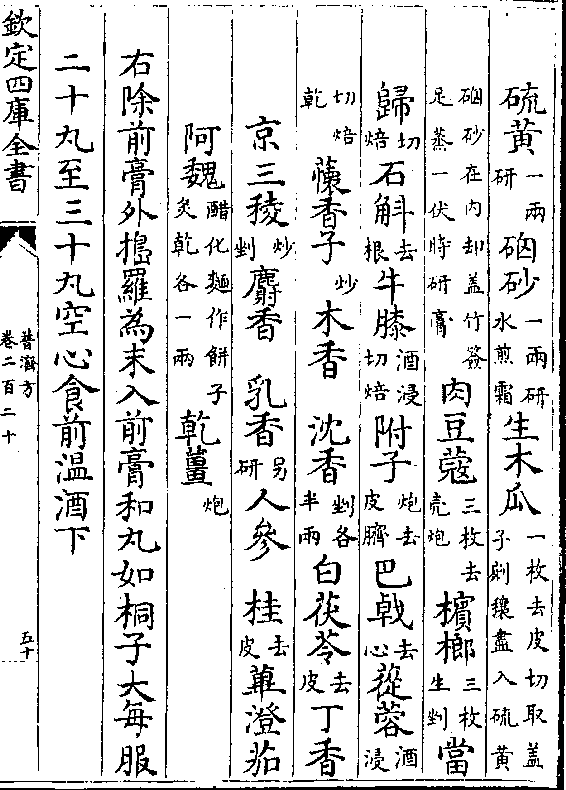 硫黄一兩研 硇砂一兩研水煎霜 生木瓜一枚去皮切取蓋子剜穰盡入硫黄
硇砂在内却盖竹簽足蒸一伏時研膏 肉豆蔻三枚去壳炮 檳榔三枚生剉 當
歸切焙 石斛去根 牛膝酒浸切焙 附子炮去皮臍 巴戟去心 蓯蓉酒浸
切焙乾 蘹香子炒 木香 沈香剉各半兩 白茯苓去皮 丁香
京三稜炒剉 麝香 乳香另研 人參 桂去皮 蓽澄茄
阿魏醋化麵作餅子炙乾各一兩 乾薑炮
右除前膏外搗羅為末入前膏和丸如桐子大每服
二十丸至三十丸空心食前温酒下
欽定四庫全書
普濟方
卷二百二十
五十